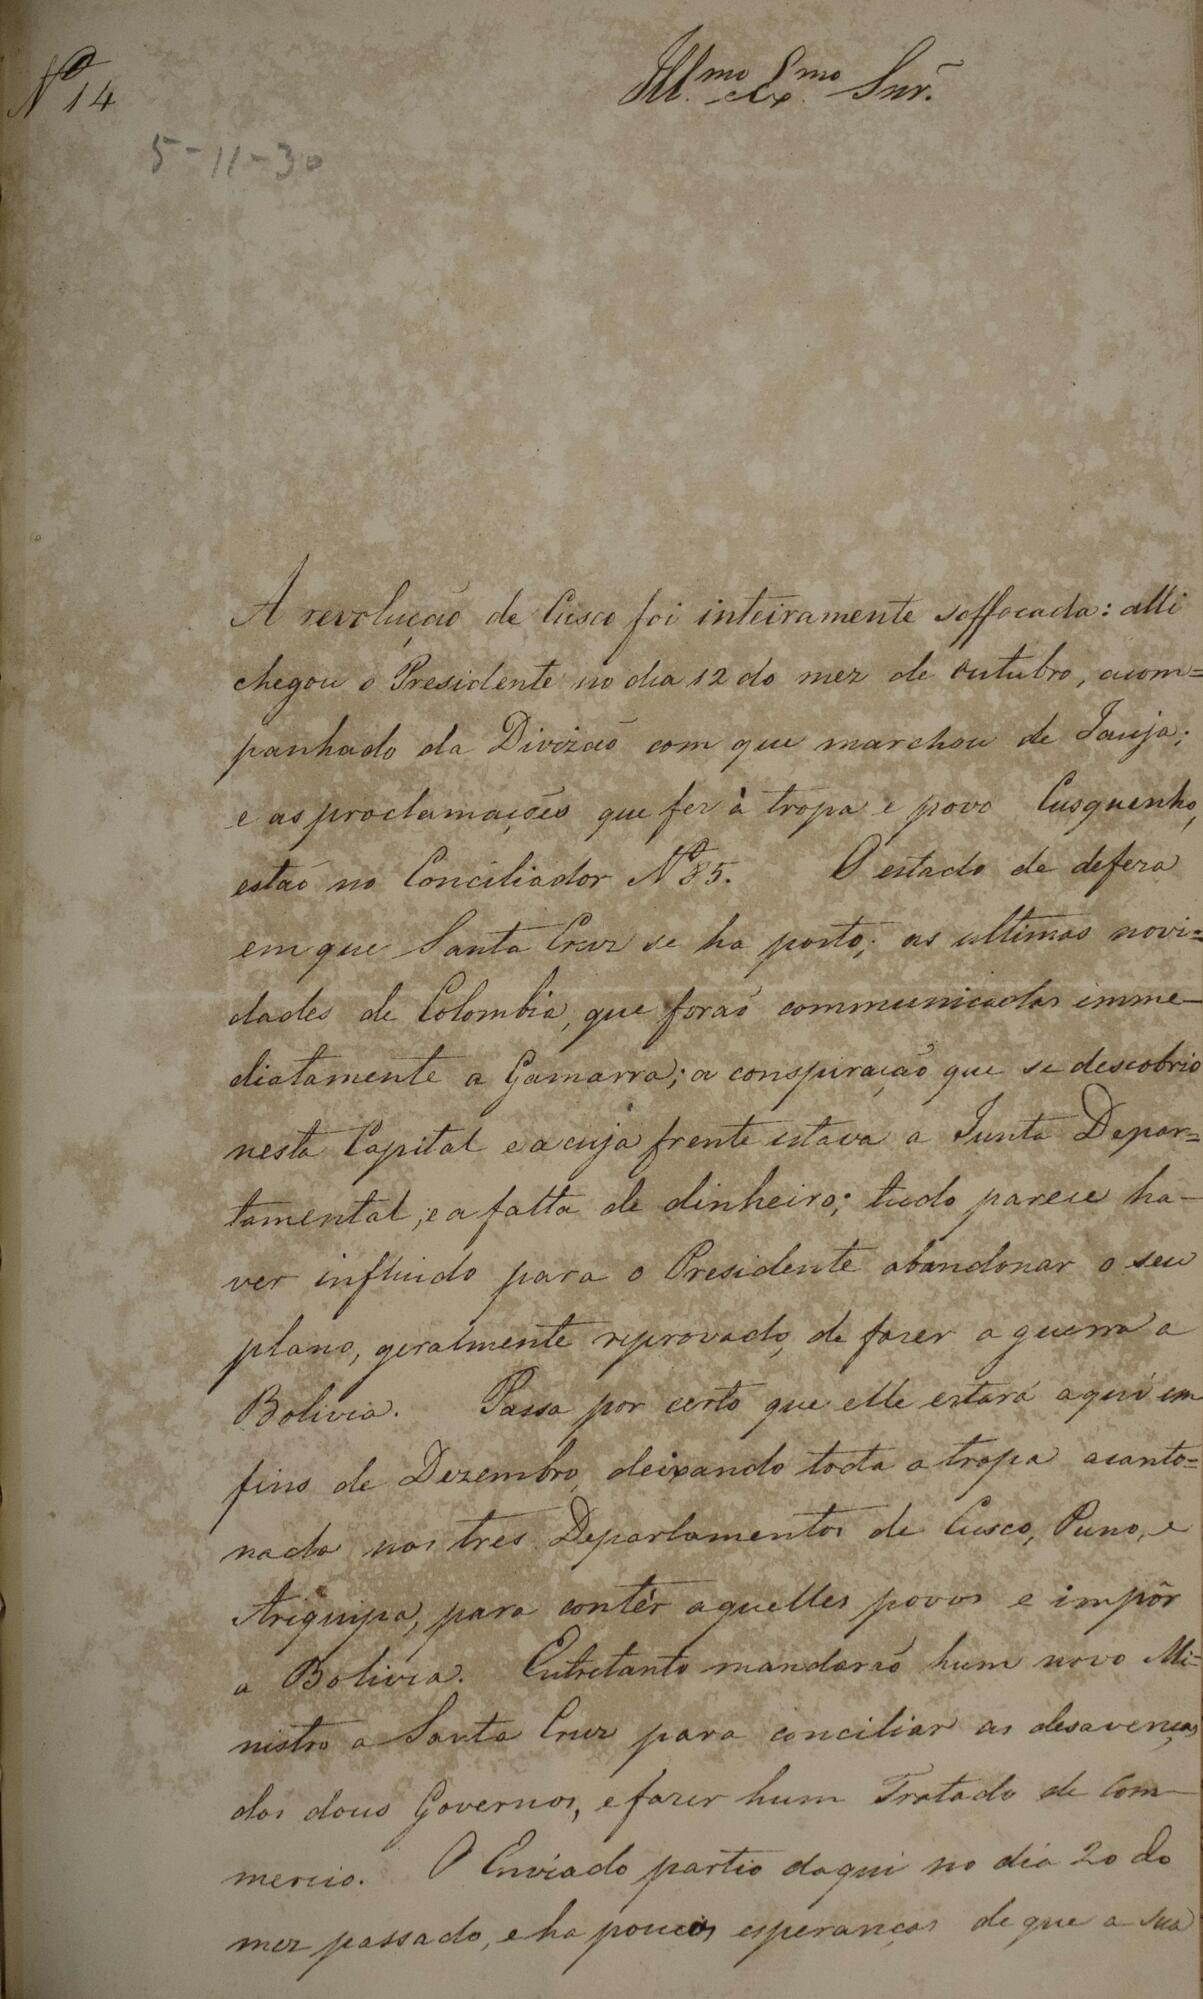 Nº 14
Ill.mo Ex.mo Snr.
5-11-30
A revolução de Cusco foi inteiramente soffocada: alli
chegou o Presidente no dia 12 do mez de Outubro, acom=
panhado da Divizaõ com que marchou de Jauja;
e as proclamações que fez à tropa e povo Cusquenho,
estaõ no Conciliador Nº 85. O estado de defeza
em que Santa Cruz se ha posto; as ultimas novi=
dades de Colombia, que foraõ communicadas imme-
diatamente a Gamarra; a conspiraçaõ que se descobrio
nesta Capital e a cuja frente estava a Junta Depar=
tamental; e a falta de dinheiro; tudo parece ha-
ver influido para o Presidente abandonar o seu
plano, geralmente reprovado, de fazer a guerra a
Bolivia. Passa por certo que elle estará aqui em
fins de Dezembro, deixando toda a tropa acanto=
nada nos tres Departamentos de Cusco, Puno, e
Ariquipa, para contêr aquelles povos e impôr
a Bolivia. Entretanto mandaraõ hum novo Mi=
nistro a Santa Cruz para conciliar as desavenças
dos dous Governos, e fazer hum Tratado de Com-
mercio. O Enviado partio daqui no dia 20 do
mez passado, e ha poucas esperanças de que a sua